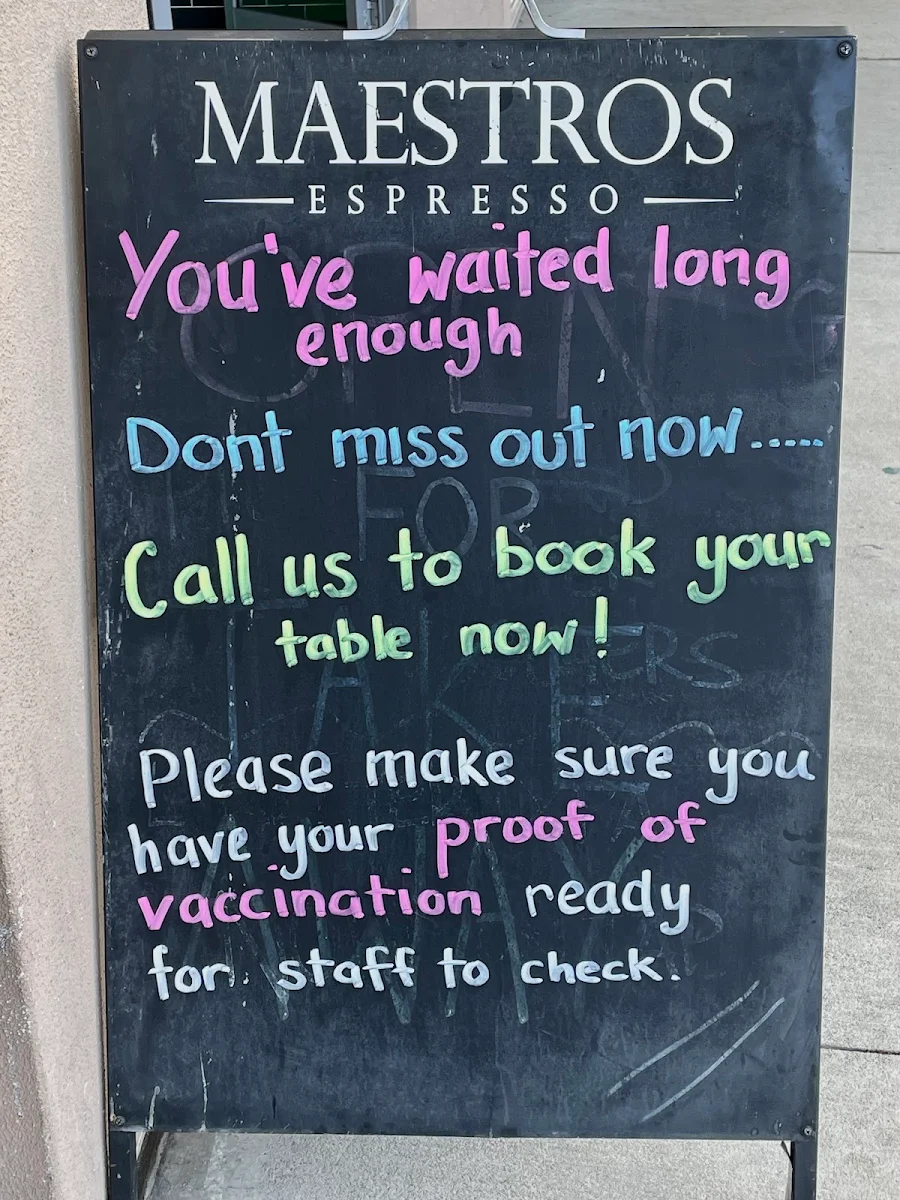 MAESTROS
ESPRESSO
You've waited long
enough
Dont miss out now.....
Call us to book your
table now!
Please make sure you
have your proof of
vaccination ready
for staff to check.
OPEN
FOR
TAKE
AWAYS